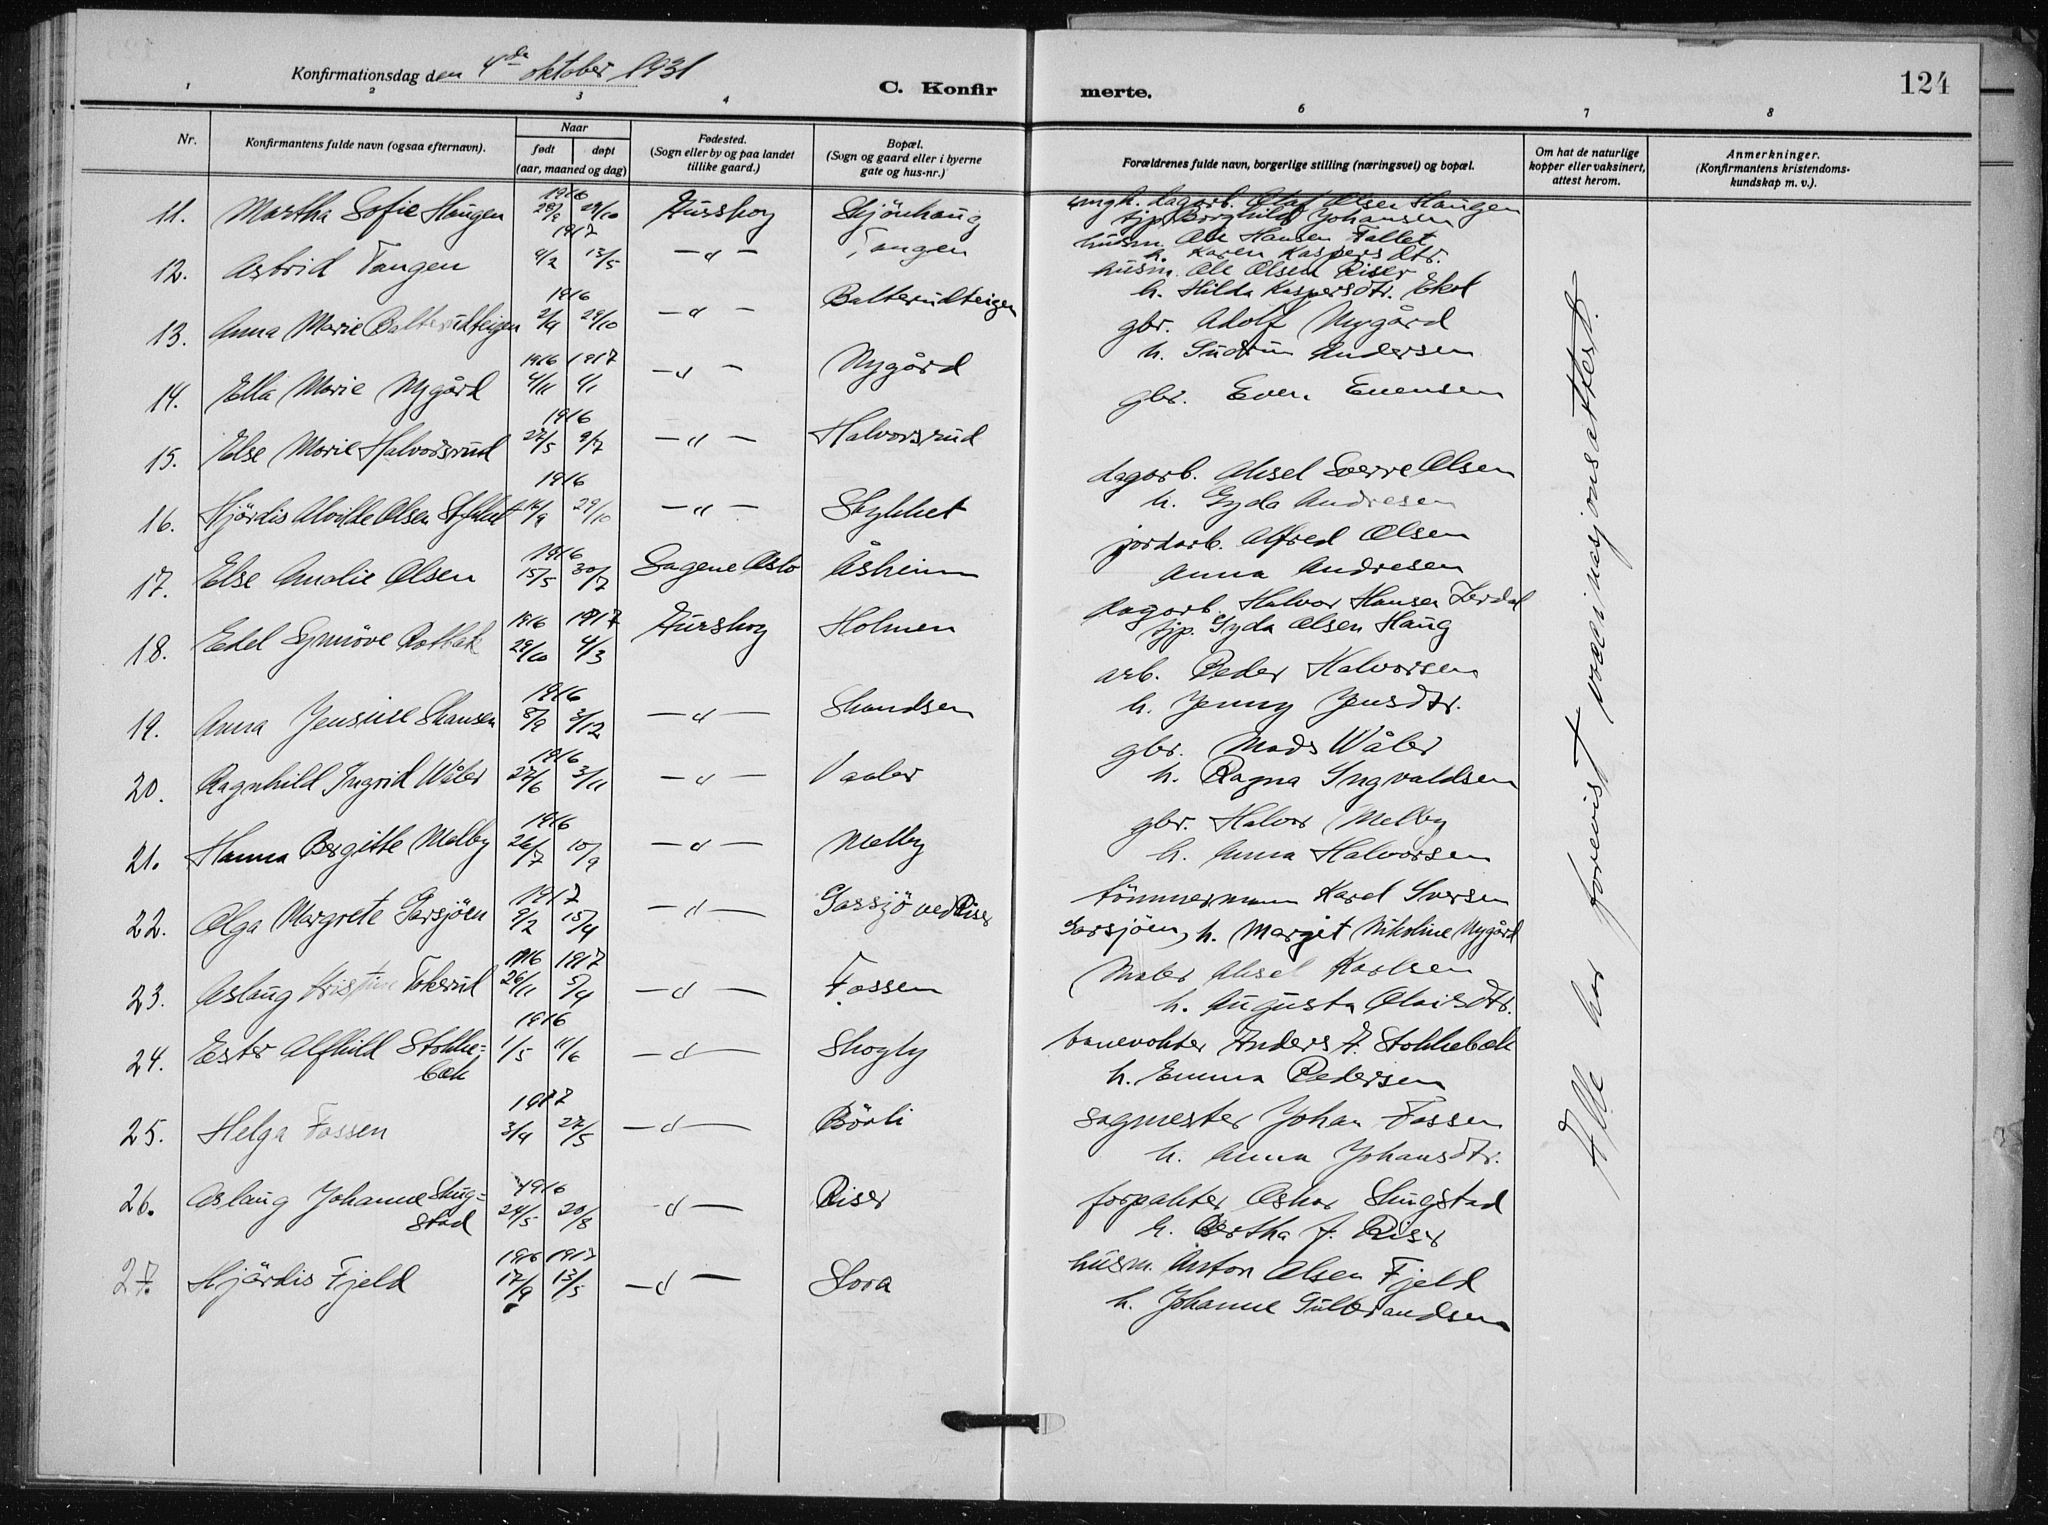 Konfirmationsdag den 4de oktober 1931
C. Konfirmerte.
124
1 2 3 4 6 7 8
Nr. Konfirmantens fulde navn (ogsaa efternavn). Naar født døpt (aar, maaned og dag) Fødested. (Sogn eller by og paa landet tillike gaard.) Bopæl. (Sogn og gaard eller i byerne gate og hus-nr.) Forældrenes fulde navn, borgerlige stilling (næringsvei) og bopæl. Om hat de naturlige kopper eller vaksinert, attest herom. Anmerkninger. (Konfirmantens kristendomskundskap m. v.).
11. Martha Sofie Haugen 1916 29/10 Aurskog Skjönhaug ungk. dagarb. Olaf Olsen Haugen
pp. Borghild Johansen
12. Astrid Tangen 1917 4/2 13/5 —"— Tangen husm. Ole Hansen Fallet
h. Karen Kaspersdtr.
husm. Ole Olsen Riser
h. Hilda Kaspersdtr. Ekol
13. Anna Marie Balterudteigen 1916 2/9 29/10 —"— Balterudteigen
14. Ella Marie Nygård 1916 1917 4/11 1/1 —"— Nygård gbr. Adolf Nygård
h. Gudrun Andersen
15. Else Marie Halvorsrud 1916 27/5 9/7 —"— Halvorsrud gbr. Even Evensen
16. Hjördis Alvilde Olsen Stykket 1916 14/9 29/10 —"— Stykket dagarb. Aksel Sverre Olsen
h. Gyda Andresen
17. Else Amalie Olsen 1916 15/5 30/7 Sagene Oslo Åsheim jordarb. Alfred Olsen
Anna Andresen
18. Edel Synnöve Rotbæk 1916 1917 29/10 4/3 Aurskog Holmen dagarb. Halvor Hansen Lerdal
pp. Gyda Olsen Haug
19. Anna Jensine Skansen 1916 8/9 3/12 —"— Skandsen arb. Peder Halvorsen
h. Jenny Jensdtr.
20. Ragnhild Ingrid Wåler 1916 27/6 3/11 —"— Vaaler gbr. Mads Wåler
h. Ragna Ingvaldsen
21. Hanna Bergitte Melby 1916 26/7 10/9 —"— Melby gbr. Halvor Melby
h. Anna Halvorsen
22. Olga Margrete Garsjöen 1917 9/2 15/4 —"— Garsjö ved Riser tömmermann Karel Iversen
Garsjöen, h. Margit Nikoline Nygård
23. Aslaug Kristine Tokerud 1916 1917 26/11 5/4 —"— Fossen Maler Aksel Karlsen
h. Augusta Olaisdtr.
24. Ester Alfhild Stokkebæk 1916 1/5 11/6 —"— Skogly banevokter Anders A. Stokkebæk
h. Emma Pedersen
25. Helga Fossen 1917 3/4 27/5 —"— Börli sagmester Johan Fossen
h. Anna Johansdtr.
26. Aslaug Johanne Slingstad 1916 24/5 20/8 —"— Riser forpakter Oskar Slingstad
h. Bertha J. Riser
27. Hjördis Fjeld 1916 1917 17/9 13/5 —"— Slora husm. Anton Olsen Fjeld
h. Johanne Gulbrandsen
Alle har forevist vaccinasjonsattest.